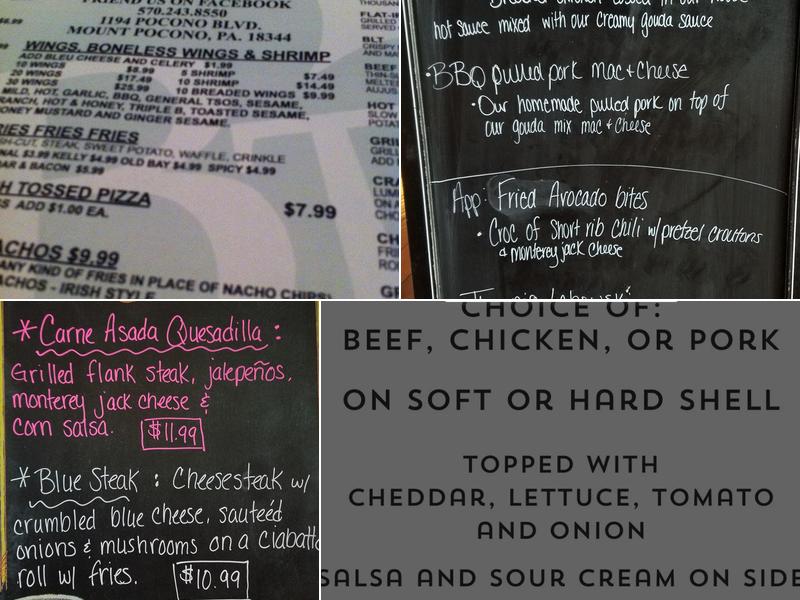 FRIEND US ON FACEBOOK
570.243.8550
1194 POCONO BLVD.
MOUNT POCONO, PA. 18344
WINGS, BONELESS WINGS & SHRIMP
ADD BLEU CHEESE AND CELERY $1.99
10 WINGS $8.99 5 SHRIMP $7.49
20 WINGS $17.49 10 SHRIMP $14.49
30 WINGS $25.99 10 BREADED WINGS $9.99
MILD, HOT, GARLIC, BBQ, GENERAL TSOS, SESAME,
RANCH, HOT & HONEY, TRIPLE B, TOASTED SESAME,
ONEY MUSTARD AND GINGER SESAME
RIES FRIES FRIES
SH-CUT, STEAK, SWEET POTATO, WAFFLE, CRINKLE
NAL $3.99 KELLY $4.99 OLD BAY $4.99 SPICY $4.99
AR & BACON $5.99
H TOSSED PIZZA $7.99
S ADD $1.00 EA.
ACHOS $9.99
ANY KIND OF FRIES IN PLACE OF NACHO CHIPS)
ACHOS - IRISH STYLE
FLAT-I
GRILLED
SERVED
BLT
CRISPY
AND MA
BEEF
THIN-S
MELTE
AUJUS
HOT
SLOW
POTAT
GRIL
ADD
CRA
LUM
ON A
CHO
CH
FRI
RO
GF
hot sauce mixed with our creamy gouda sauce
• BBQ pulled pork mac + cheese
• Our homemade pulled pork on top of
our gouda mix mac + cheese
App: Fried Avocado bites
• Croc of Short rib chili w/ pretzel croutons
& monterey jack cheese
*Carne Asada Quesadilla :
Grilled flank steak, jalepeños,
monterey jack cheese &
corn salsa. $11.99
*Blue Steak : Cheesesteak w/
crumbled blue cheese, sauteéd
onions & mushrooms on a ciabatta
roll w/ fries. $10.99
CHOICE OF:
BEEF, CHICKEN, OR PORK
ON SOFT OR HARD SHELL
TOPPED WITH
CHEDDAR, LETTUCE, TOMATO
AND ONION
SALSA AND SOUR CREAM ON SIDE